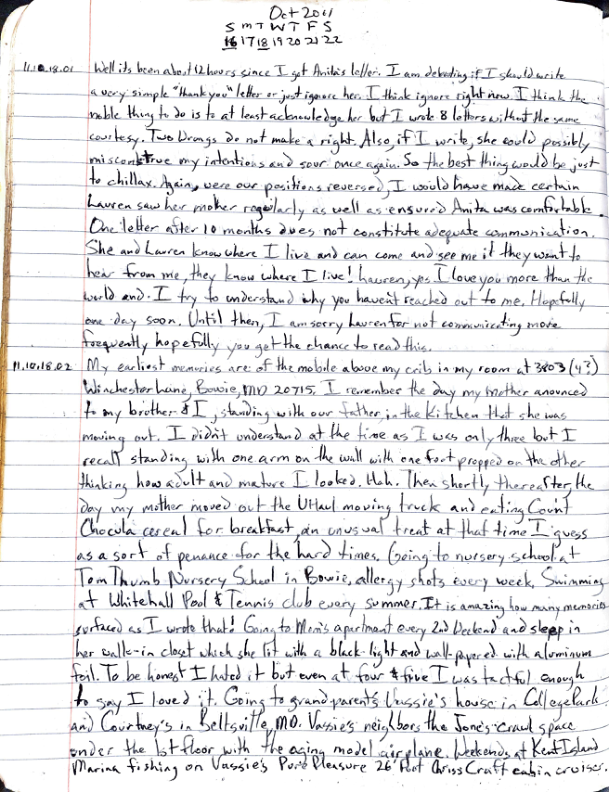 Oct 2011
S M T W T F S
16 17 18 19 20 21 22
11.10.18.01 Well its been about 12 hours since I got Anita's letter. I am debating if I should write
a very simple "thank you" letter or just ignore her. I think ignore right now. I think the
noble thing to do is to at least acknowledge her but I wrote 8 letters without the same
courtesy. Two wrongs do not make a right. Also, if I write, she could possibly
misconstrue my intentions and sour once again. So the best thing would be just
to chillax. Again, were our positions reversed, I would have made certain
Lauren saw her mother regularly as well as ensured Anita was comfortable.
One letter after 10 months does not constitute adequate communication.
She and Lauren know where I live and can come and see me if they want to
hear from me, they know where I live! Lauren, yes I love you more than the
world and. I try to understand why you haven't reached out to me. Hopefully
one day soon. Until then, I am sorry Lauren for not communicating more
frequently hopefully you get the chance to read this.
11.10.18.02 My earliest memories are of the mobile above my crib in my room at 3803 (4?)
Winchester Lane, Bowie, MD 20715. I remember the day my mother anounced
to my brother & I, standing with our father, in the kitchen that she was
moving out. I didn't understand at the time as I was only three but I
recall standing with one arm on the wall with one foot propped on the other
thinking how adult and mature I looked. Huh. Then shortly thereafter, the
day my mother moved out the UHaul moving truck and eating Count
Chocula cereal for breakfast, an unusual treat at that time I guess
as a sort of penance for the hard times. Going to nursery school at
Tom Thumb Nursery School in Bowie, allergy shots every week. Swimming
at Whitehall Pool & Tennis club every summer. It is amazing how many memories
surfaced as I wrote that! Going to Mom's apartment every 2nd weekend and sleep in
her walk-in closet which she lit with a black-light and wall-papered with aluminum
foil. To be honest I hated it but even at four & five I was tactful enough
to say I loved it. Going to grandparents Vassie's house in College Park
and Courtney's in Beltsville, MD. Vassie's neighbors the Jone's crawl space
under the 1st floor with the aging model airplane. Weekends at Kent Island
Marina fishing on Vassie's Pure Pleasure 26' foot Chriss Craft cabin cruiser.